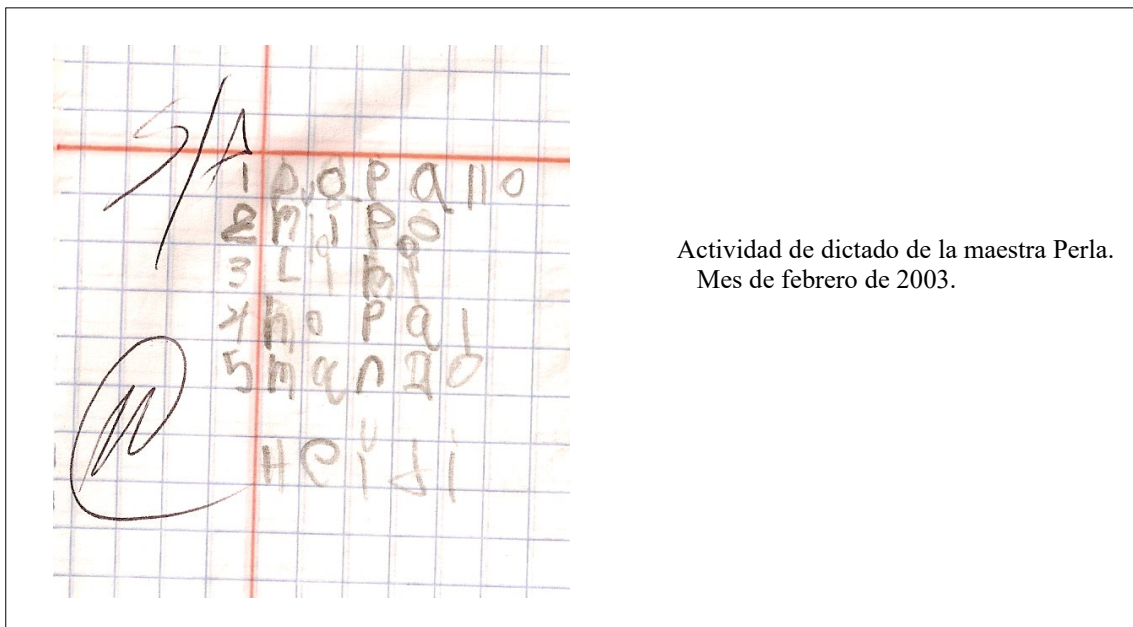 S/A
1 papallo
2 mijpo
3 Limi
4 nopal
5 manzo
Heidi
Actividad de dictado de la maestra Perla.
Mes de febrero de 2003.